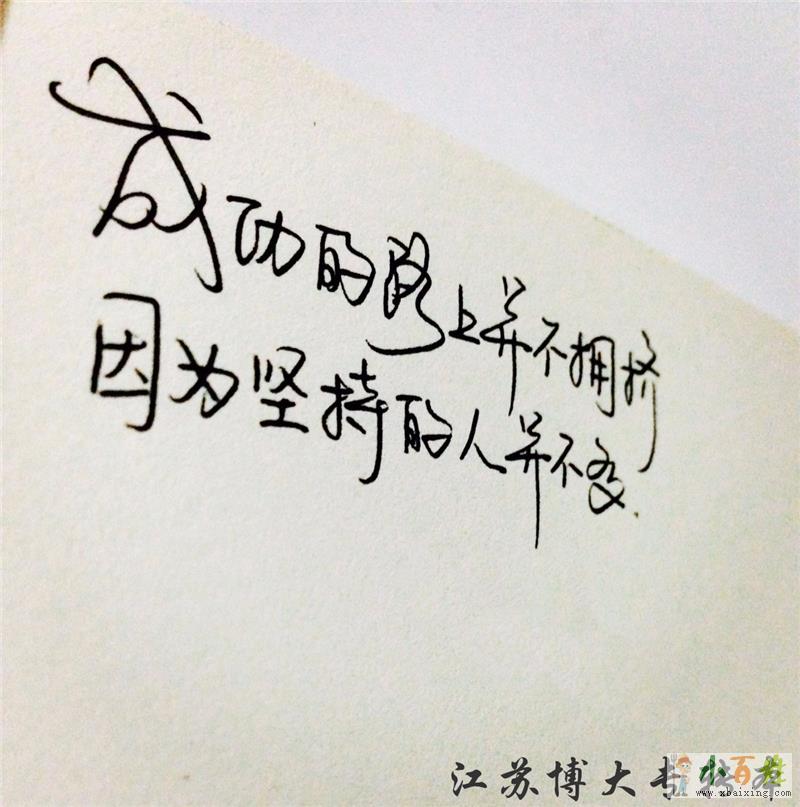 成功的路上并不拥挤
因为坚持的人并不多.
江苏博大专转本
小百姓
www.xbaixing.com